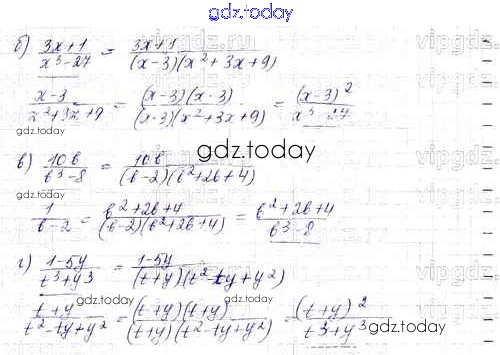 gdz.today
б) (3x+1)/(x³-27) = (3x+1)/((x-3)(x²+3x+9))
(x-3)/(x²+3x+9) = ((x-3)(x-3))/((x-3)(x²+3x+9)) = (x-3)²/(x³-27)
gdz.today
gdz.today
в) 10b/(b³-8) = 10b/((b-2)(b²+2b+4))
1/(b-2) = (b²+2b+4)/((b-2)(b²+2b+4)) = (b²+2b+4)/(b³-8)
г) (1-5y)/(t³+y³) = (1-5y)/((t+y)(t²-ty+y²))
gdz.today
gdz.today
(t+y)/(t²-ty+y²) = ((t+y)(t+y))/((t+y)(t²-ty+y²)) = (t+y)²/(t³+y³)